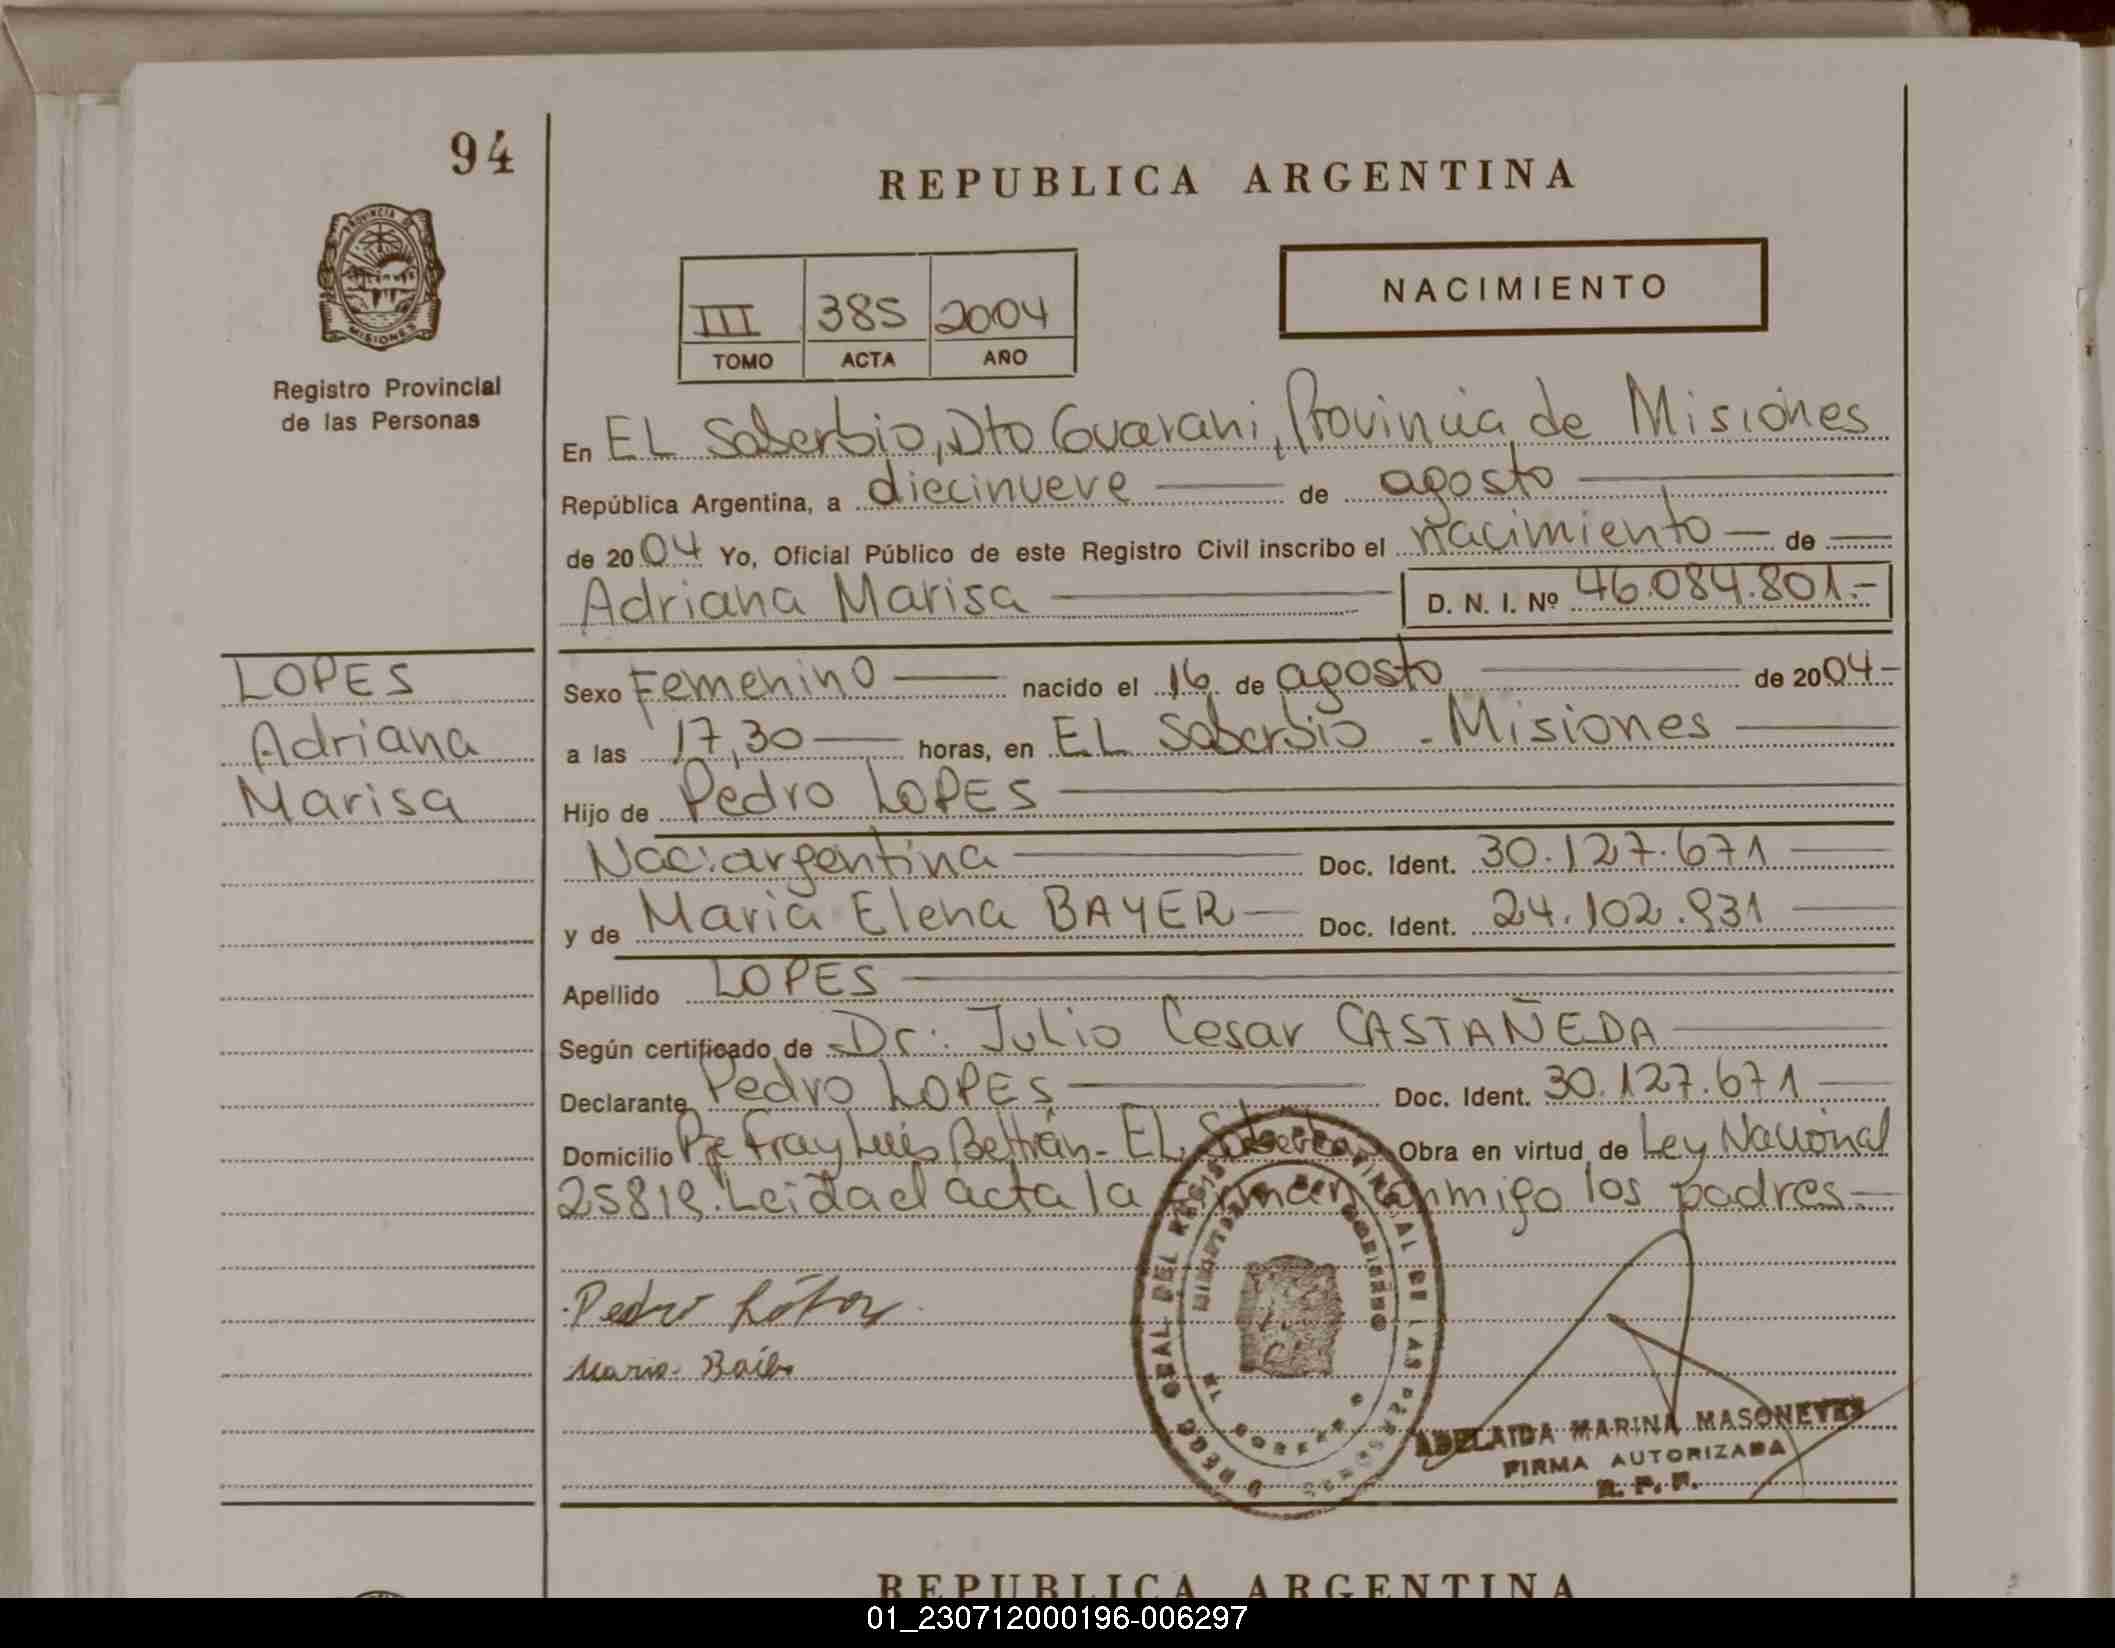 94
REPUBLICA ARGENTINA
PROVINCIA DE
MISIONES
Registro Provincial
de las Personas
III 385 2004
TOMO ACTA AÑO
NACIMIENTO
En EL Soberbio, Dto Guarani, Provincia de Misiones
República Argentina, a diecinueve de agosto
de 2004 Yo, Oficial Público de este Registro Civil inscribo el nacimiento de
Adriana Marisa D. N. I. Nº 46.084.801.-
LOPES
Adriana
Marisa
Sexo Femenino nacido el 16 de agosto de 2004-
a las 17,30 horas, en EL Soberbio - Misiones
Hijo de Pedro LOPES
Nac: argentina Doc. Ident. 30.127.671
y de Maria Elena BAYER Doc. Ident. 24.102.931
Apellido LOPES
Según certificado de Dr: Julio Cesar CASTAÑEDA
Declarante Pedro LOPES Doc. Ident. 30.127.671
Domicilio Pje Fray Luis Beltrán - EL Soberbio Obra en virtud de Ley Nacional
25819. Leida el acta la firman conmigo los padres.
Pedro
Maria
ADELAIDA MARINA
FIRMA AUTORIZADA
R. P. P.
REPUBLICA ARGENTINA
01_230712000196-006297